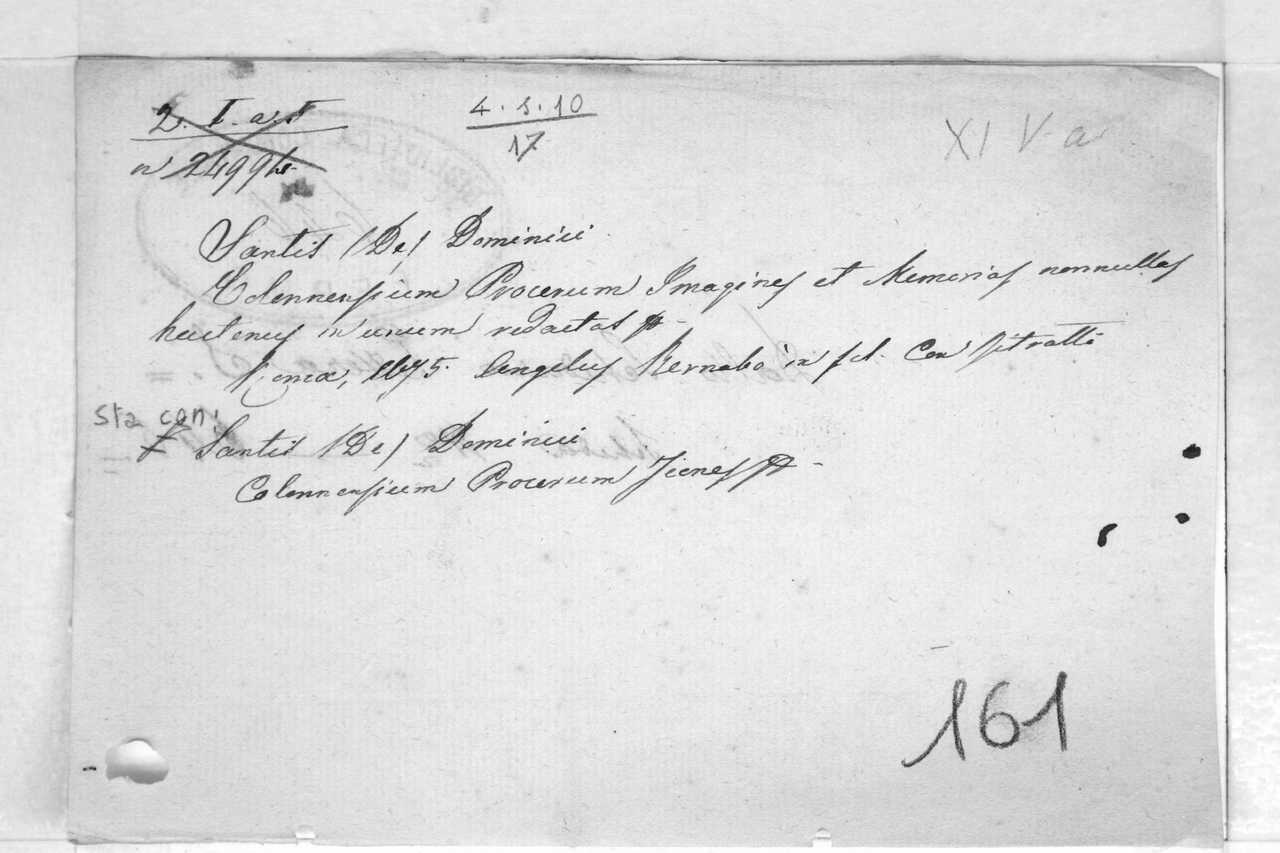 2. I. a. 5
n 2499
4. 5. 10
17
XI V a
Santis (De) Dominici
Colonnensium Procerum Imagines et Memorias nonnullas
hactenus in unum redactas
Romæ, 1675. Angelus Bernabo in fol. Con Ritratti
sta con:
Santis (De) Dominici
Colonnensium Procerum Icones
161